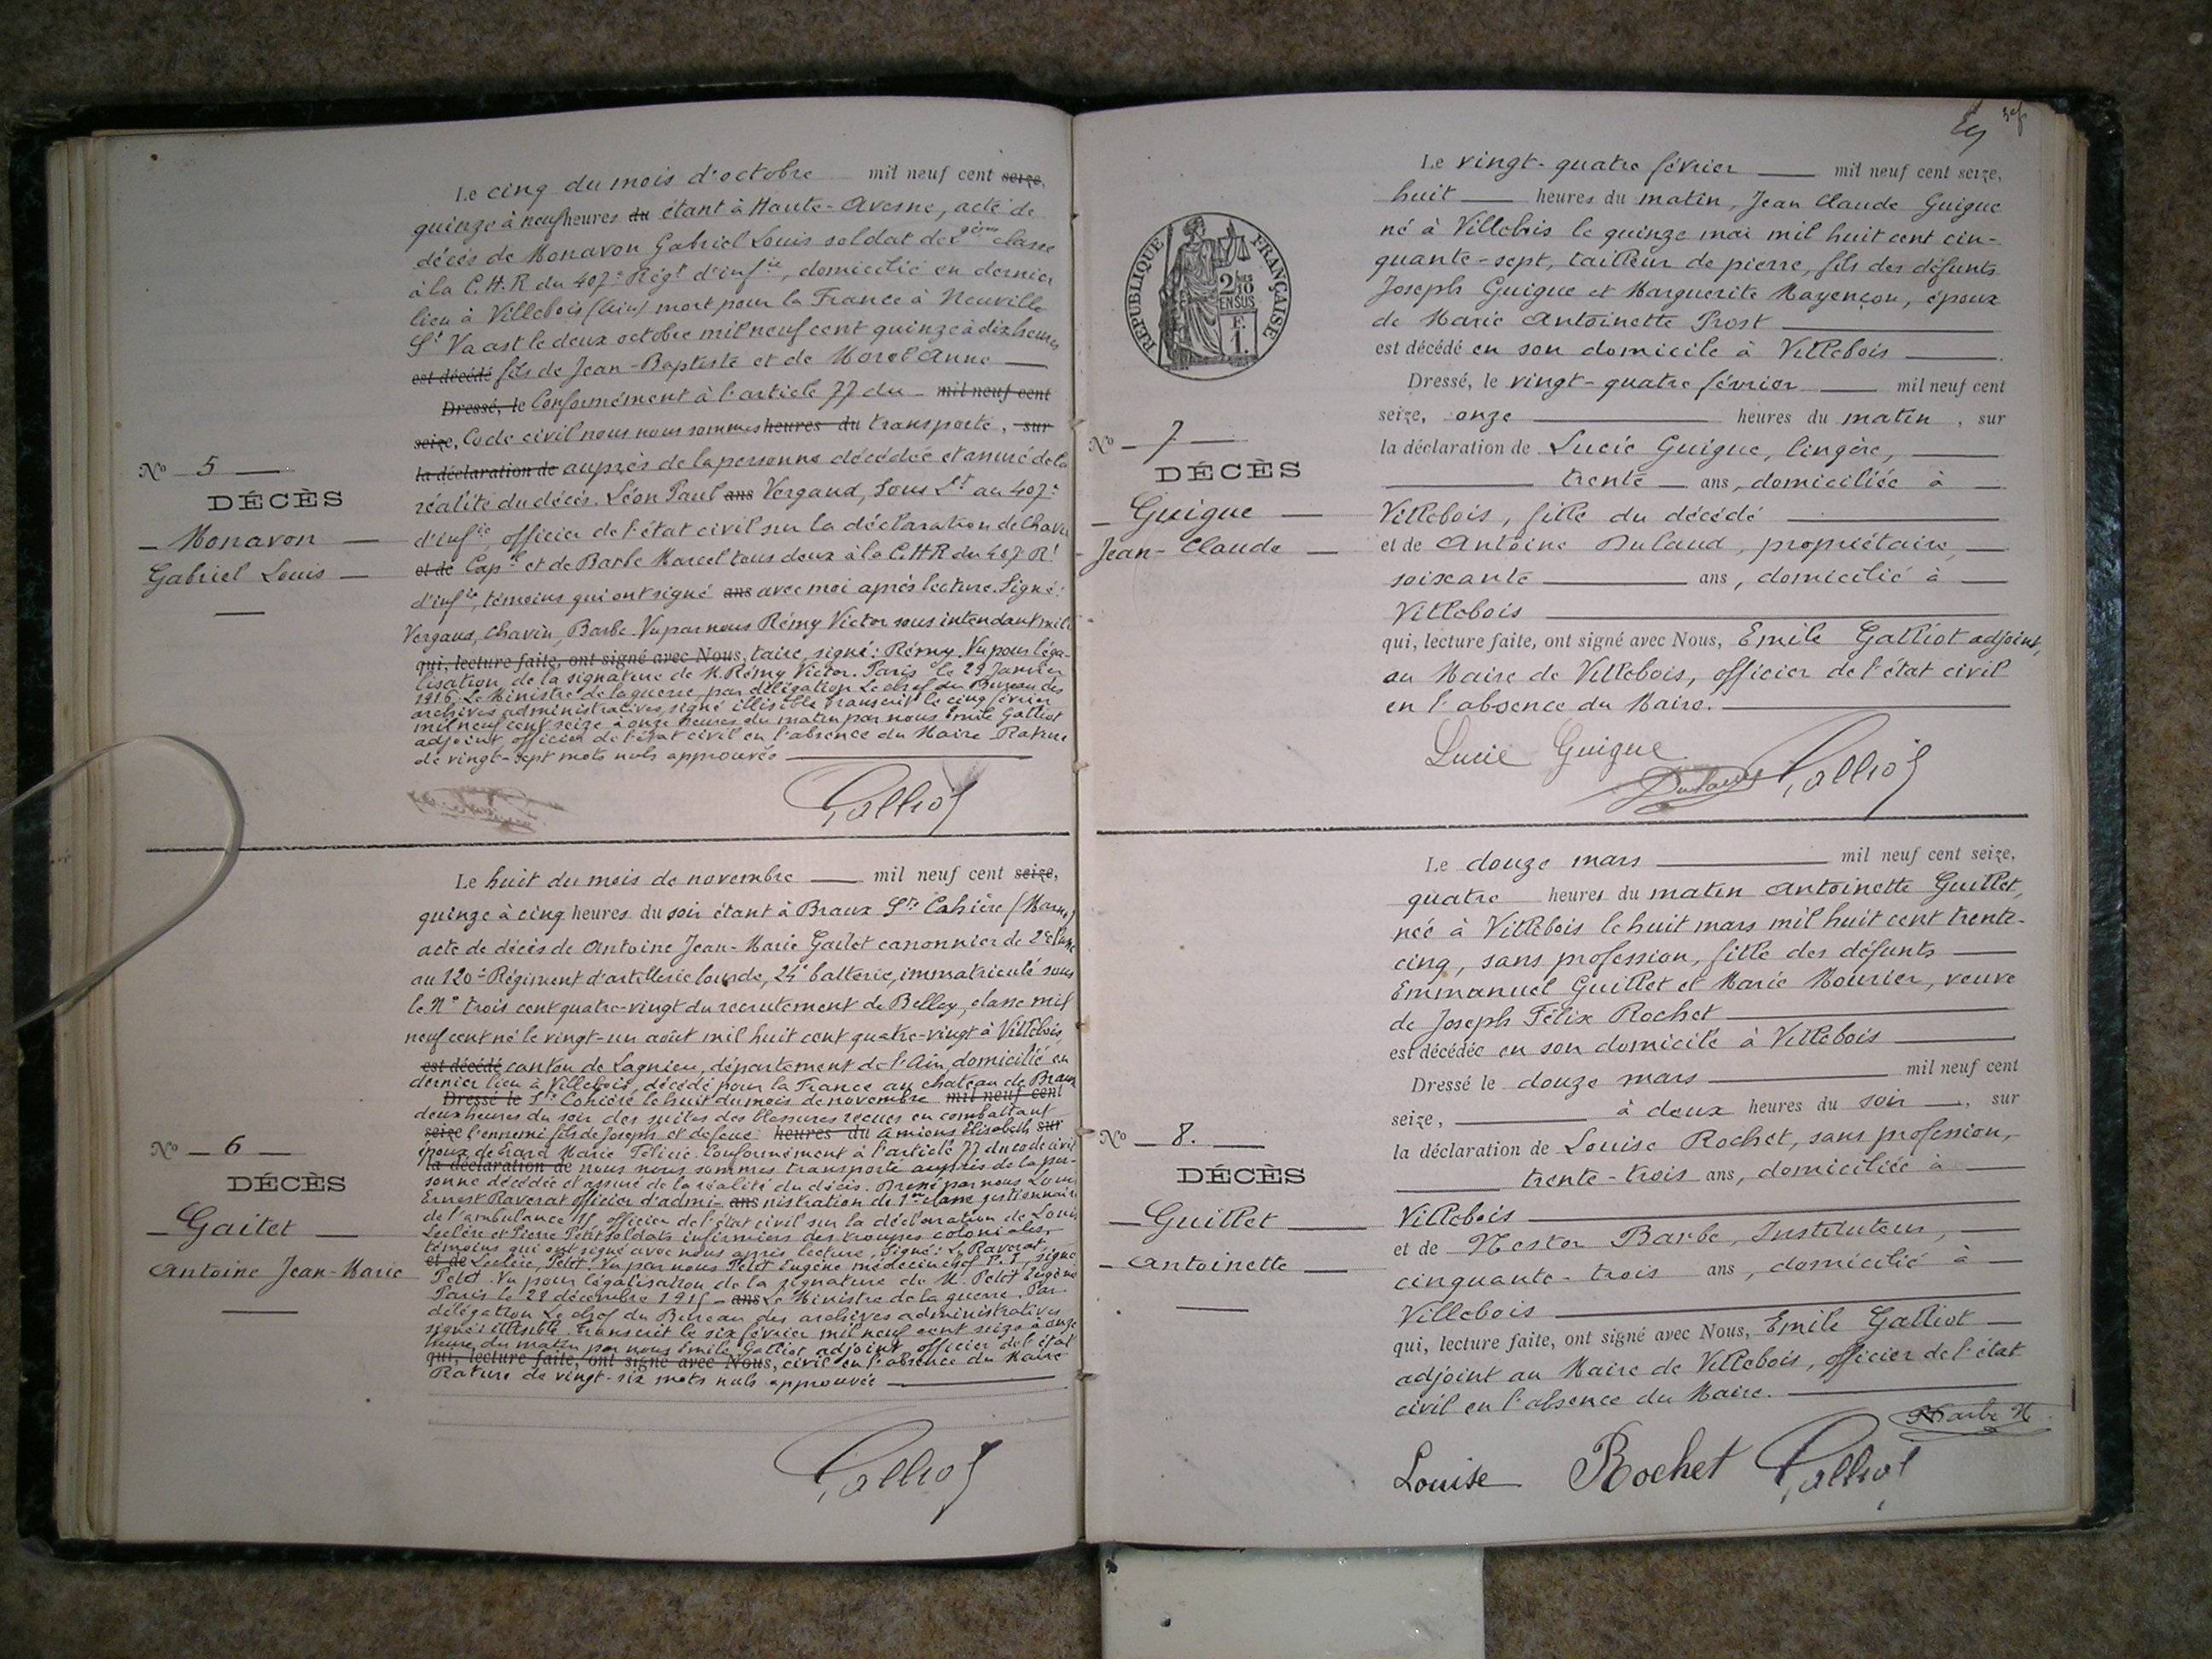 Le cinq du mois d'octobre mil neuf cent seize,
quinze à neuf heures du étant à Haute-Avesne, acte de
décès de Monavon Gabriel Louis soldat de 2ème classe
à la C.H.R du 407e Régt d'infie, domicilié en dernier
lieu à Villebois (Ain) mort pour la France à Neuville
St Vaast le deux octobre mil neuf cent quinze à dix heures
est décédé fils de Jean-Baptiste et de Morel Anne
Dressé, le Conformément à l'article 77 du mil neuf cent
seize, Code civil nous nous sommes heures du transporté, sur
la déclaration de auprès de la personne décédée et assuré de la
réalité du décès. Léon Paul ans Vergaud, Sous Lt au 407e
d'infie officier de l'état civil sur la déclaration de Chavin
et de Capal et de Barbe Marcel tous deux à la C.H.R du 407 Rt
d'infie, témoins qui ont signé ans avec moi après lecture. Signé:
Vergaud, Chavin, Barbe. Vu par nous Rémy Victor sous intendant mili
qui, lecture faite, ont signé avec Nous, taire, signé: Rémy. Vu pour léga-
lisation de la signature de M. Rémy Victor. Paris le 29 Janvier
1916. Le Ministre de la guerre, par délégation Le chef du Bureau des
archives administratives, signé illisible Transcrit le cinq février
mil neuf cent seize à onze heures du matin par nous Emile Galliot
adjoint, officier de l'état civil en l'absence du Maire Rature
de vingt-sept mots nuls approuvée
Galliot
No 5
DÉCÈS
Monavon
Gabriel Louis
Le huit du mois de novembre mil neuf cent seize,
quinze à cinq heures du soir étant à Braux Ste Cohière (Marne)
acte de décès de Antoine Jean-Marie Gaitet canonnier de 2e classe
au 120e Régiment d'artillerie lourde, 24e batterie, immatriculé sous
le No trois cent quatre-vingt du recrutement de Belley, classe mil
neuf cent né le vingt-un août mil huit cent quatre-vingt à Villebois,
est décédé canton de Lagnieu, département de l'Ain, domicilié en
dernier lieu à Villebois, décédé pour la France au chateau de Braux
Dressé le Ste Cohière le huit du mois de novembre mil neuf cent
deux heures du soir des suites des blessures reçues en combattant
seize l'ennemi fils de Joseph et de feue heures du Amiens Elisabeth sur
époux de Marie Félicie. Conformément à l'article 77 du code civil
la déclaration de nous nous sommes transporté auprès de la per-
sonne décédée et assuré de la réalité du décès. Dressé par nous Louis
Ernest Raverat officier d'admi- ans nistration de 1re classe gestionnaire
de l'ambulance officier de l'état civil sur la déclaration de Louis
Leclère et Pierre Petit soldats infirmiers des troupes coloniales,
témoins qui ont signé avec nous après lecture. Signé: L. Raverat,
et de Leclère, Petit. Vu par nous Petit Eugène médecin chef P.I., signé
Petit. Vu pour légalisation de la signature de M. Petit Eugène
Paris le 28 décembre 1915 ans Le Ministre de la guerre. Par
délégation Le chef du Bureau des archives administratives
signé: illisible. Transcrit le six février mil neuf cent seize à onze
heures du matin par nous Emile Galliot adjoint, officier de l'état
qui, lecture faite, ont signé avec Nous, civil en l'absence du Maire
Rature de vingt-six mots nuls approuvée
Galliot
No 6
DÉCÈS
Gaitet
Antoine Jean-Marie
RÉPUBLIQUE FRANÇAISE
2/10
EN SUS
F.
1.
Le vingt-quatre février mil neuf cent seize,
huit heures du matin, Jean Claude Guigue
né à Villebois le quinze mai mil huit cent cin-
quante-sept, tailleur de pierre, fils des défunts
Joseph Guigue et Marguerite Mayençon, époux
de Marie Antoinette Prost
est décédé en son domicile à Villebois
Dressé, le vingt-quatre février mil neuf cent
seize, onze heures du matin, sur
la déclaration de Lucie Guigue, lingère,
trente ans, domiciliée à
Villebois, fille du décédé
et de Antoine Dulaud, propriétaire,
soixante ans, domicilié à
Villebois
qui, lecture faite, ont signé avec Nous, Emile Galliot adjoint,
au Maire de Villebois, officier de l'état civil
en l'absence du Maire.
Lucie Guigue
Dulaud Galliot
No 7
DÉCÈS
Guigue
Jean-Claude
Le douze mars mil neuf cent seize,
quatre heures du matin Antoinette Guillet,
née à Villebois le huit mars mil huit cent trente-
cinq, sans profession, fille des défunts
Emmanuel Guillet et Marie Mourier, veuve
de Joseph Félix Rochet
est décédée en son domicile à Villebois
Dressé le douze mars mil neuf cent
seize, à deux heures du soir, sur
la déclaration de Louise Rochet, sans profession,
trente-trois ans, domiciliée à
Villebois
et de Nestor Barbe, Instituteur,
cinquante-trois ans, domicilié à
Villebois
qui, lecture faite, ont signé avec Nous, Emile Galliot
adjoint au Maire de Villebois, officier de l'état
civil en l'absence du Maire.
Barbe N
Louise Rochet Galliot
No 8.
DÉCÈS
Guillet
Antoinette